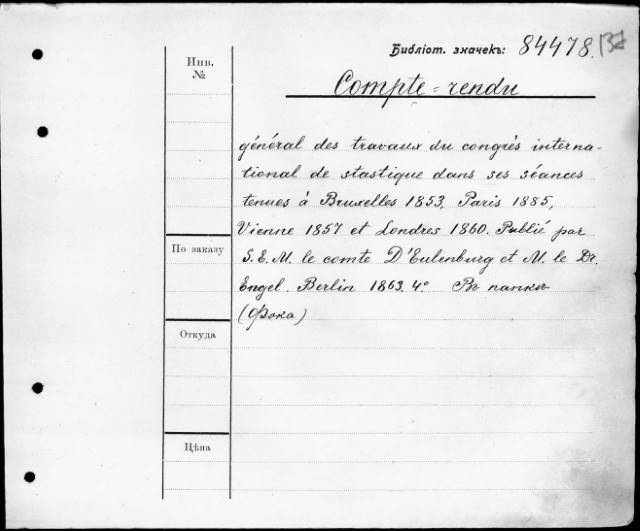 Библіот. значекъ: 84478.
Инв.
№
Compte=rendu
général des travaux du congrès interna-
tional de stastique dans ses séances
tenues à Bruxelles 1853, Paris 1885,
Vienne 1857 et Londres 1860. Publié par
По заказу
S.E.M. le comte D'Eulenburg et M. le Dr.
Engel. Berlin 1863. 4° Въ папкѣ
(Фока)
Откуда
Цѣна